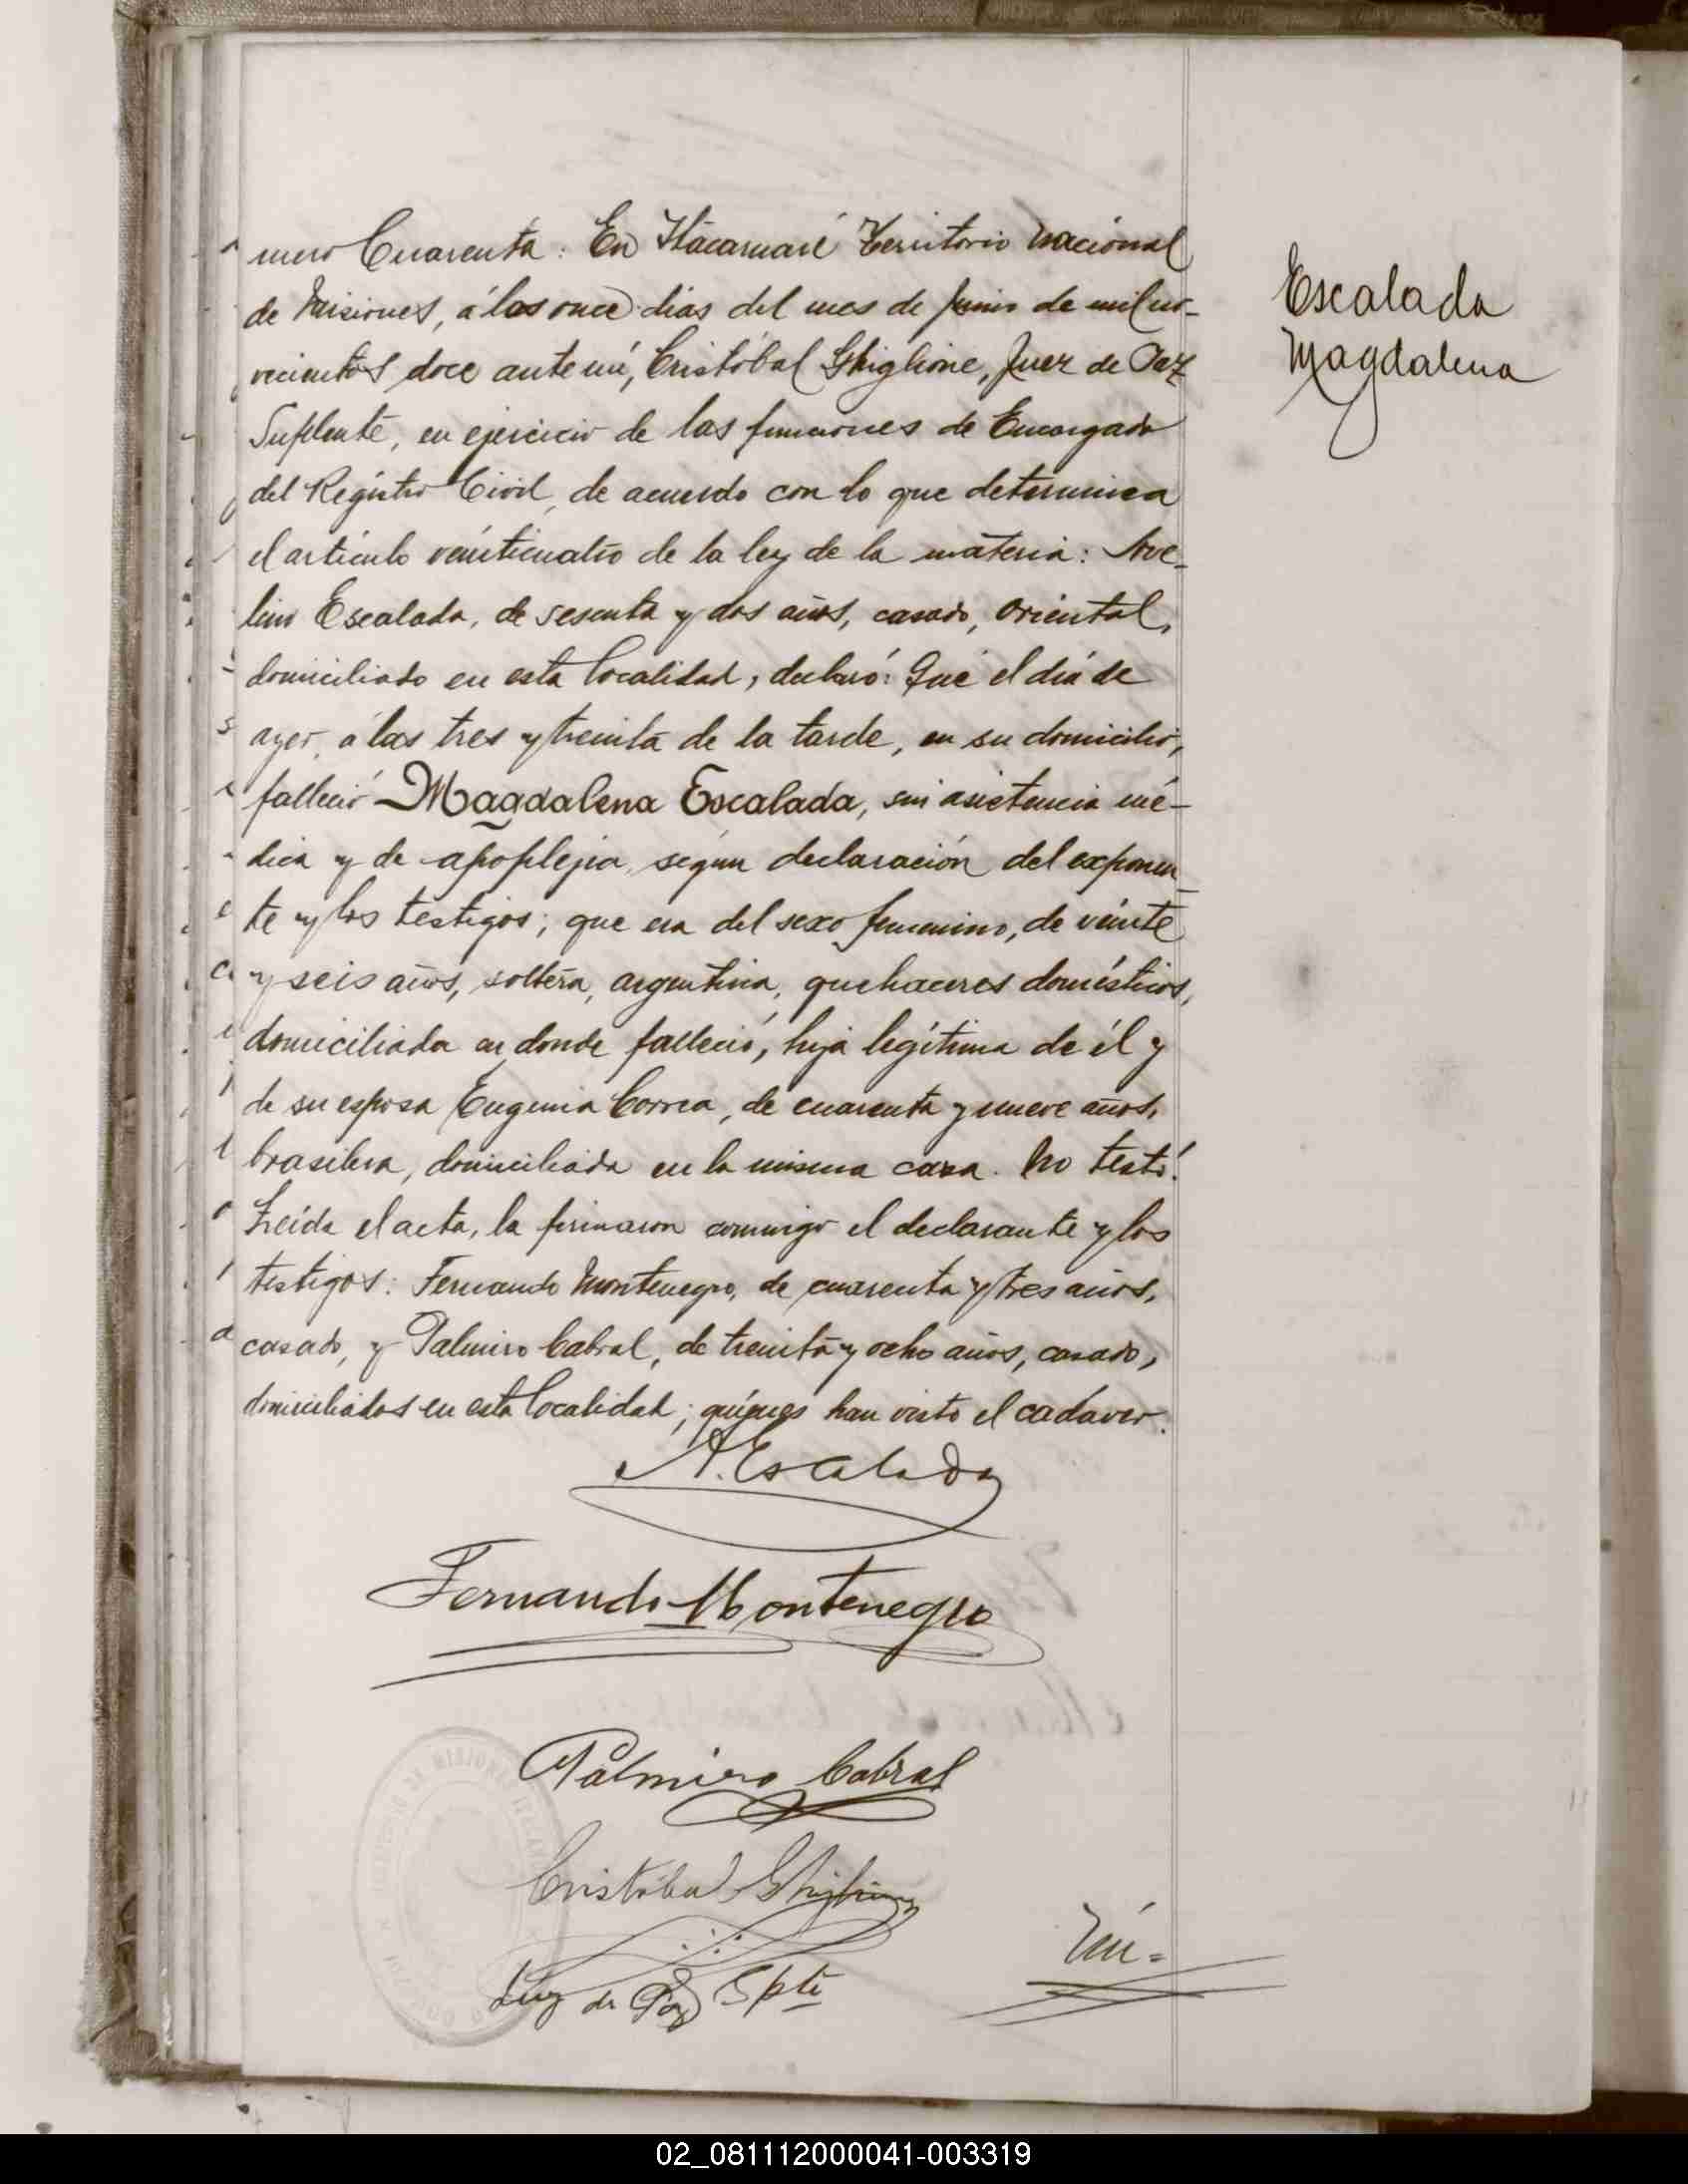 mero Cuarenta: En Itacaruaré Territorio Nacional
de Misiones, á los once dias del mes de Junio de mil no-
vecientos doce ante mí, Cristóbal Ghiglione, Juez de Paz
Suplente, en ejercicio de las funciones de Encargado
del Registro Civil, de acuerdo con lo que determina
el artículo veinticuatro de la ley de la materia: Ave-
lino Escalada, de sesenta y dos años, casado, oriental,
domiciliado en esta localidad, declaró: Que el día de
ayer, á las tres y treinta de la tarde, en su domicilio,
falleció Magdalena Escalada, sin asistencia mé-
dica y de apoplejia, según declaración del exponen-
te y los testigos; que era del sexo femenino, de veinte
y seis años, soltera, argentina, quehaceres domésticos,
domiciliada en donde falleció, hija legítima de él y
de su esposa Eugenia Correa, de cuarenta y nueve años,
brasilera, domiciliada en la misma casa. No testó.
Leída el acta, la firmaron conmigo el declarante y los
testigos: Fernando Montenegro, de cuarenta y tres años,
casado, y Palmiro Cabral, de treinta y ocho años, casado,
domiciliados en esta localidad; quiénes han visto el cadaver.
Escalada
Magdalena
A. Escalada
Fernando Montenegro
Palmiro Cabral
Cristóbal Ghiglione
Juez de Paz Spte
Nú=
02_081112000041-003319